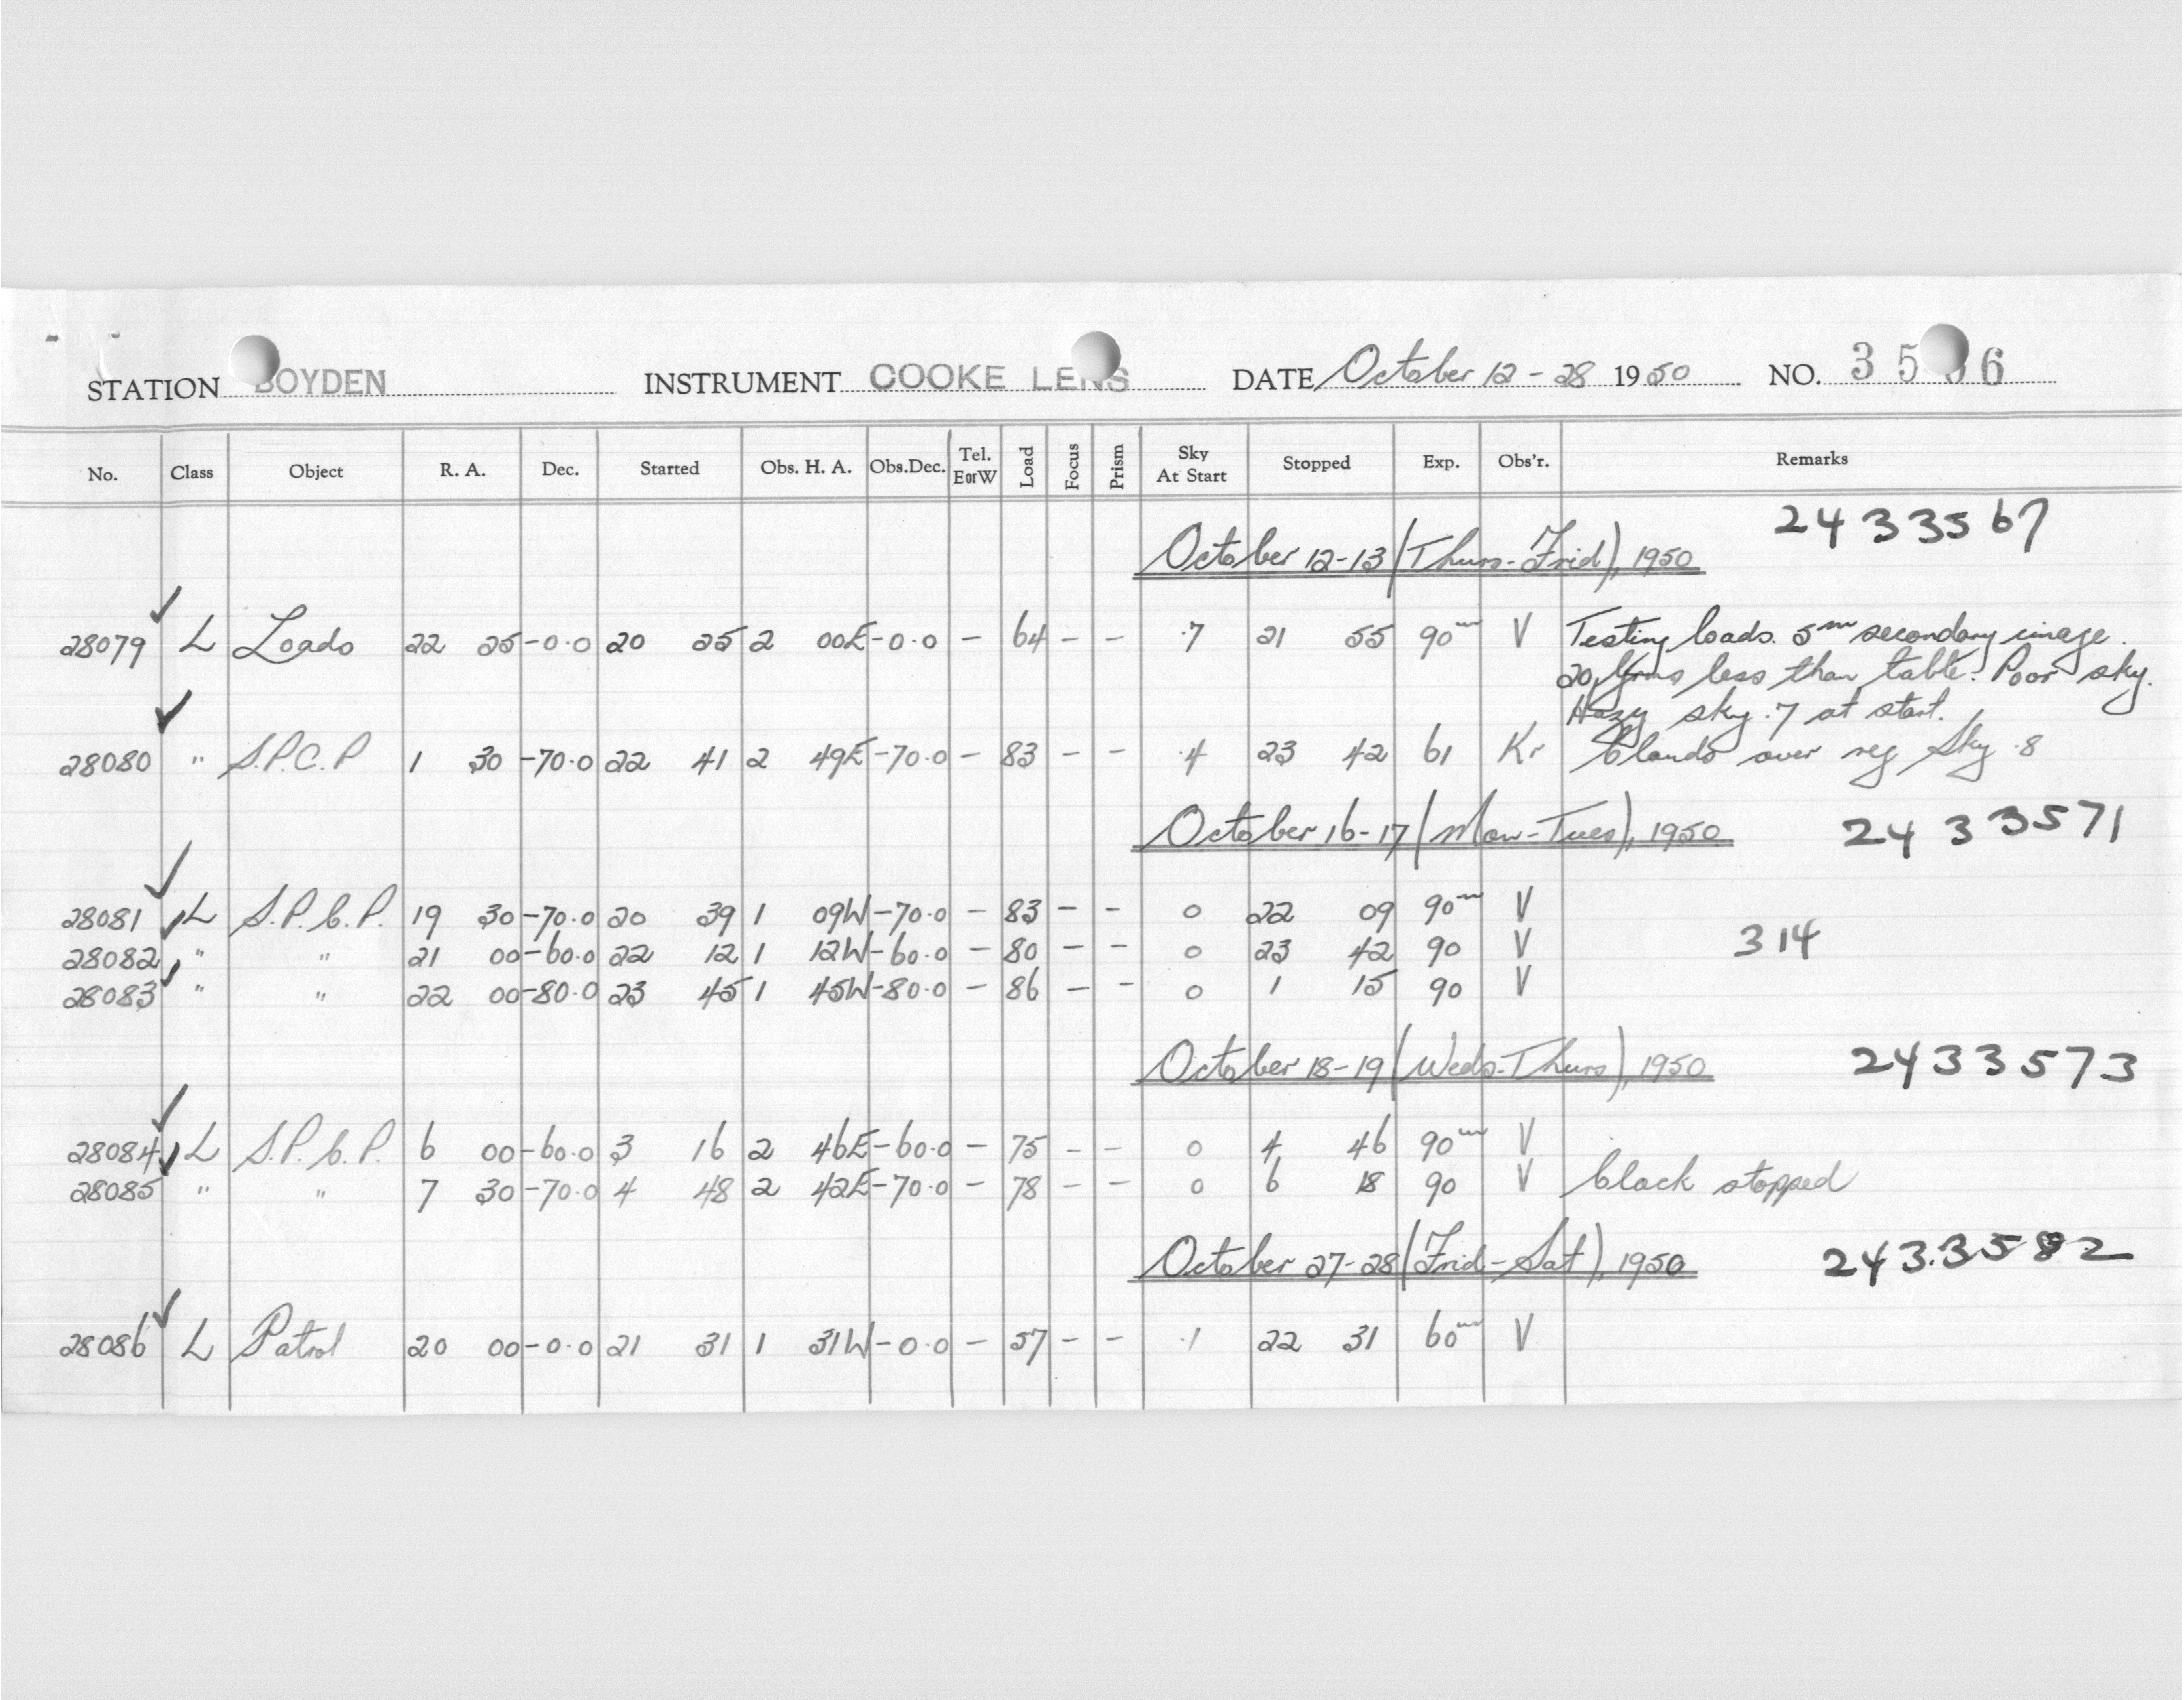 STATION BOYDEN INSTRUMENT COOKE LENS DATE October 12-28 1950 NO. 35 6
No. Class Object R. A. Dec. Started Obs. H. A. Obs.Dec. Tel. EorW Load Focus Prism Sky At Start Stopped Exp. Obs'r. Remarks
October 12-13 (Thurs-Frid), 1950 2433567
28079 L Loads 22 25 -0.0 20 25 2 00E -0.0 - 64 - - .7 21 55 90m V Testing loads. 5m secondary image.
20 grms less than table. Poor sky.
Hazy sky .7 at start.
28080 " S.P.C.P 1 30 -70.0 22 41 2 49E -70.0 - 83 - - .4 23 42 61 Kr Clouds over reg Sky .8
October 16-17 (Mon-Tues), 1950 2433571
28081 L S.P.C.P. 19 30 -70.0 20 39 1 09W -70.0 - 83 - - 0 22 09 90m V
28082 " " 21 00 -60.0 22 12 1 12W -60.0 - 80 - - 0 23 42 90 V 314
28083 " " 22 00 -80.0 23 45 1 45W -80.0 - 86 - - 0 1 15 90 V
October 18-19 (Weds-Thurs), 1950 2433573
28084 L S.P.C.P. 6 00 -60.0 3 16 2 46E -60.0 - 75 - - 0 4 46 90m V
28085 " " 7 30 -70.0 4 48 2 42E -70.0 - 78 - - 0 6 18 90 V Clock stopped
October 27-28 (Frid-Sat), 1950 243.3582
28086 L Patrol 20 00 -0.0 21 31 1 31W -0.0 - 57 - - .1 22 31 60m V